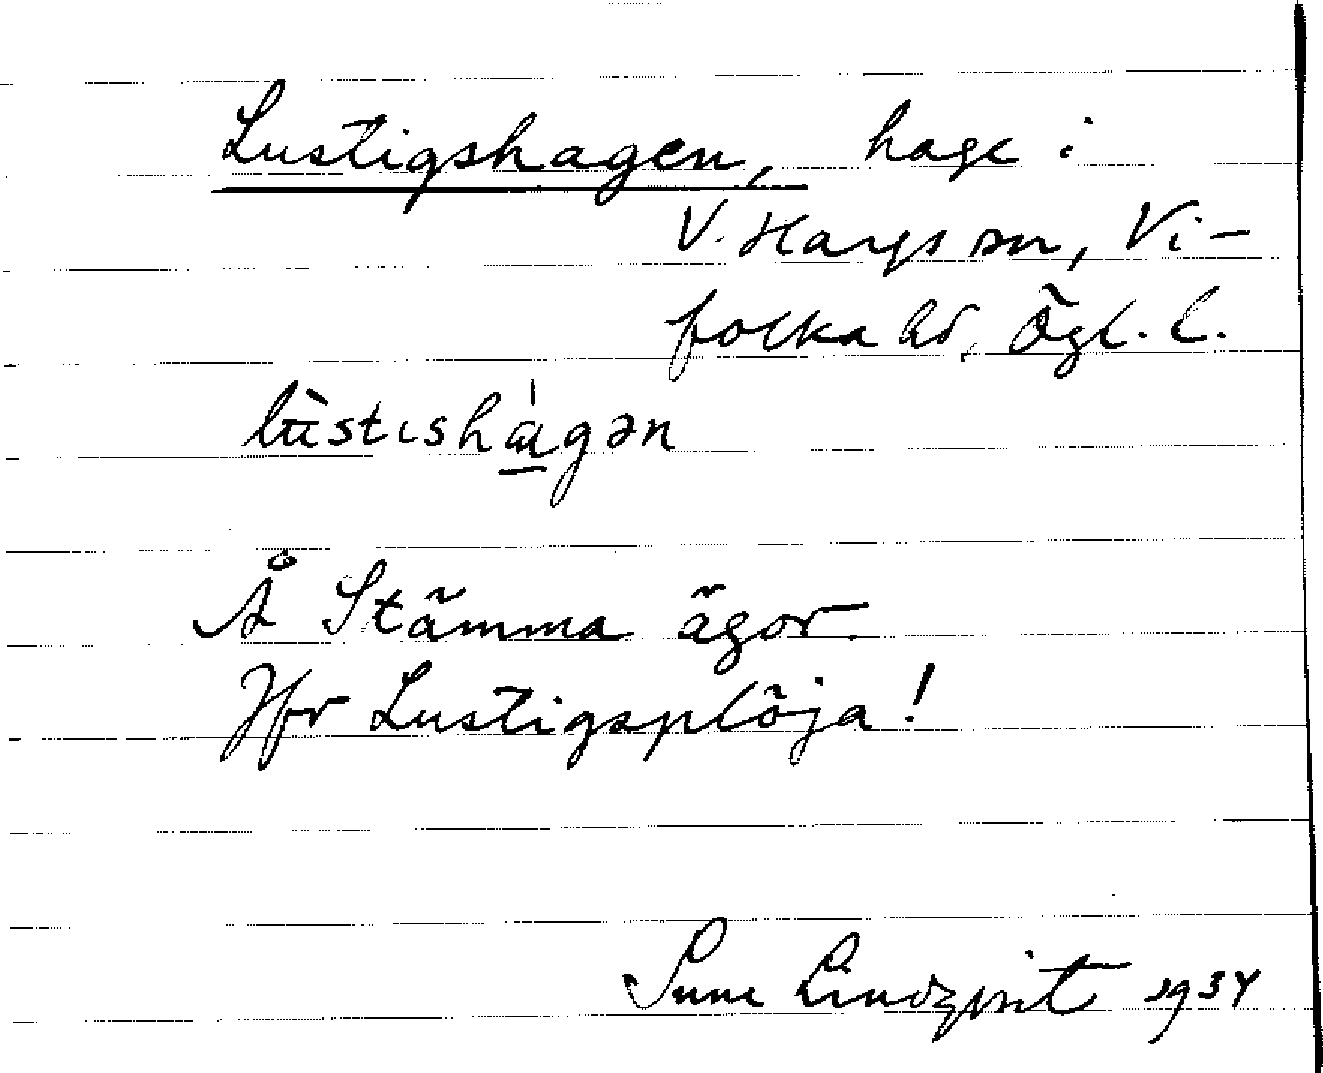 Lustigshagen, hage i
V. Hargs sn, Vi-
folka hd, Ögl. l.
lùstıshàgən
Å Stämma ägor.
Jfr Lustigsplöja!
Sune Lindqvist 1934